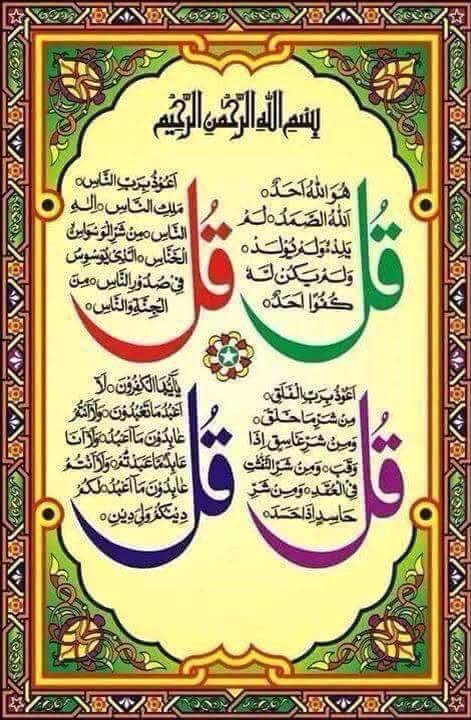 بِسْمِ اللهِ الرَّحْمٰنِ الرَّحِيْمِ
قُلْ
هُوَ اللهُ اَحَدٌ ۝
اللهُ الصَّمَدُ ۝ لَمْ
يَلِدْ ۝ وَلَمْ يُوْلَدْ ۝
وَلَمْ يَكُنْ لَّهٗ
كُفُوًا اَحَدٌ ۝
قُلْ
اَعُوْذُ بِرَبِّ النَّاسِ ۝
مَلِكِ النَّاسِ ۝ اِلٰهِ
النَّاسِ ۝ مِنْ شَرِّ الْوَسْوَاسِ
الْخَنَّاسِ ۝ الَّذِيْ يُوَسْوِسُ
فِيْ صُدُوْرِ النَّاسِ ۝ مِنَ
الْجِنَّةِ وَالنَّاسِ ۝
قُلْ
اَعُوْذُ بِرَبِّ الْفَلَقِ ۝
مِنْ شَرِّ مَا خَلَقَ ۝
وَمِنْ شَرِّ غَاسِقٍ اِذَا
وَقَبَ ۝ وَمِنْ شَرِّ النَّفّٰثٰتِ
فِي الْعُقَدِ ۝ وَمِنْ شَرِّ
حَاسِدٍ اِذَا حَسَدَ ۝
قُلْ
يٰٓاَيُّهَا الْكٰفِرُوْنَ ۝ لَآ
اَعْبُدُ مَا تَعْبُدُوْنَ ۝ وَلَآ اَنْتُمْ
عٰبِدُوْنَ مَآ اَعْبُدُ ۝ وَلَآ اَنَا
عَابِدٌ مَّا عَبَدْتُّمْ ۝ وَلَآ اَنْتُمْ
عٰبِدُوْنَ مَآ اَعْبُدُ ۝ لَكُمْ
دِيْنُكُمْ وَلِيَ دِيْنِ ۝